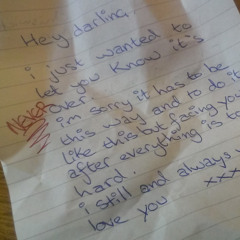 Hey darling,
i just wanted to
let you know it's
NEVER over.
i'm sorry it has to be
this way and to do it
like this but facing you
after everything is to
hard.
i still and always
love you xxx